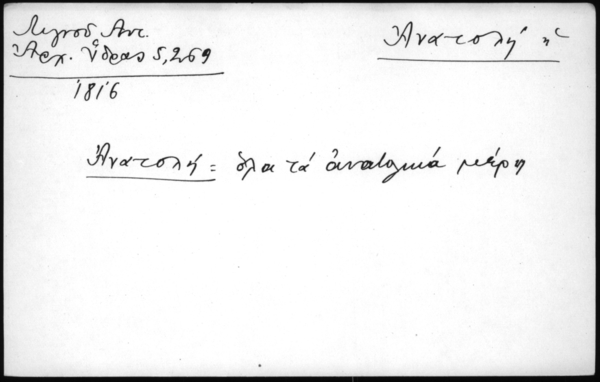 Λιγνοδ. Αντ.
Ἀρχ. Ὕδρας 5,269
1816
Ἀνατολή ἡ
Ἀνατολή = ὅλα τά ἀνατολικά μέρη